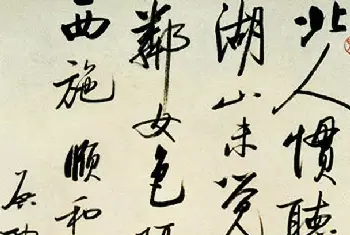 北人慣聽
湖山未覺
鄰女色
西施順和
启功